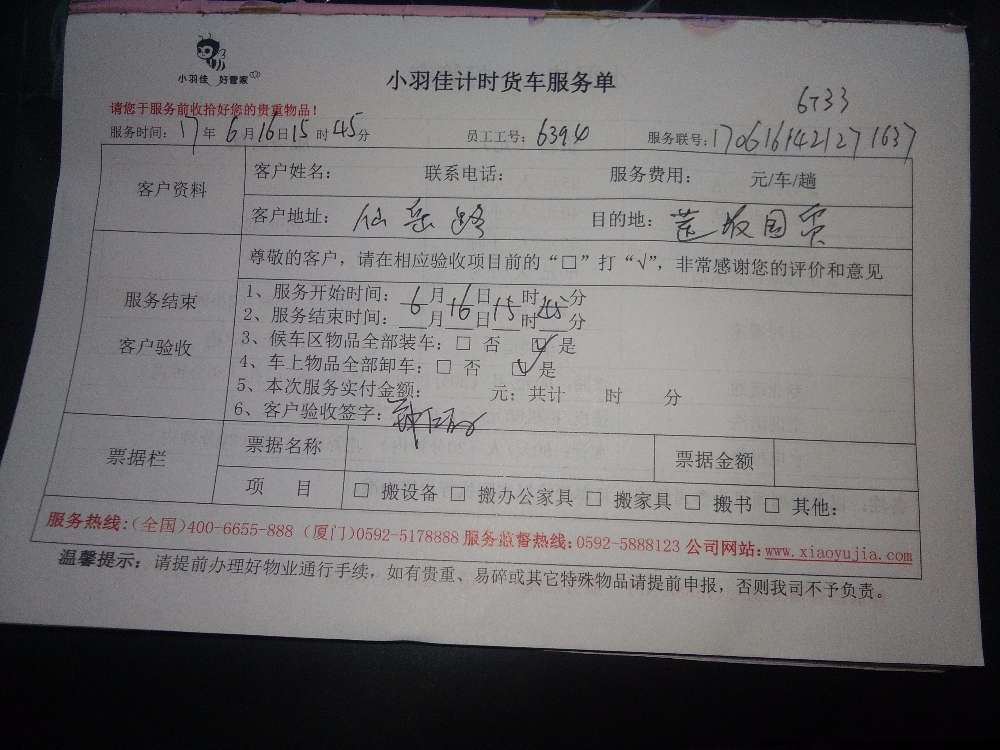 小羽佳 好管家
小羽佳计时货车服务单
6733
请您于服务前收拾好您的贵重物品！
服务时间：17年6月16日15时45分 员工工号：6394 服务联号：1706161421271637
客户资料
客户姓名： 联系电话： 服务费用： 元/车/趟
客户地址：仙岳路 目的地：莲坂国贸
服务结束
客户验收
尊敬的客户，请在相应验收项目前的“□”打“√”，非常感谢您的评价和意见
1、服务开始时间：6月16日15时45分
2、服务结束时间：___月___日___时___分
3、候车区物品全部装车：□ 否 ☑ 是
4、车上物品全部卸车：□ 否 ☑ 是
5、本次服务实付金额： 元；共计 时 分
6、客户验收签字：
票据栏
票据名称 票据金额
项 目 □ 搬设备 □ 搬办公家具 □ 搬家具 □ 搬书 □ 其他：
服务热线：（全国）400-6655-888（厦门）0592-5178888 服务监督热线：0592-5888123 公司网站：www.xiaoyujia.com
温馨提示：请提前办理好物业通行手续，如有贵重、易碎或其它特殊物品请提前申报，否则我司不予负责。